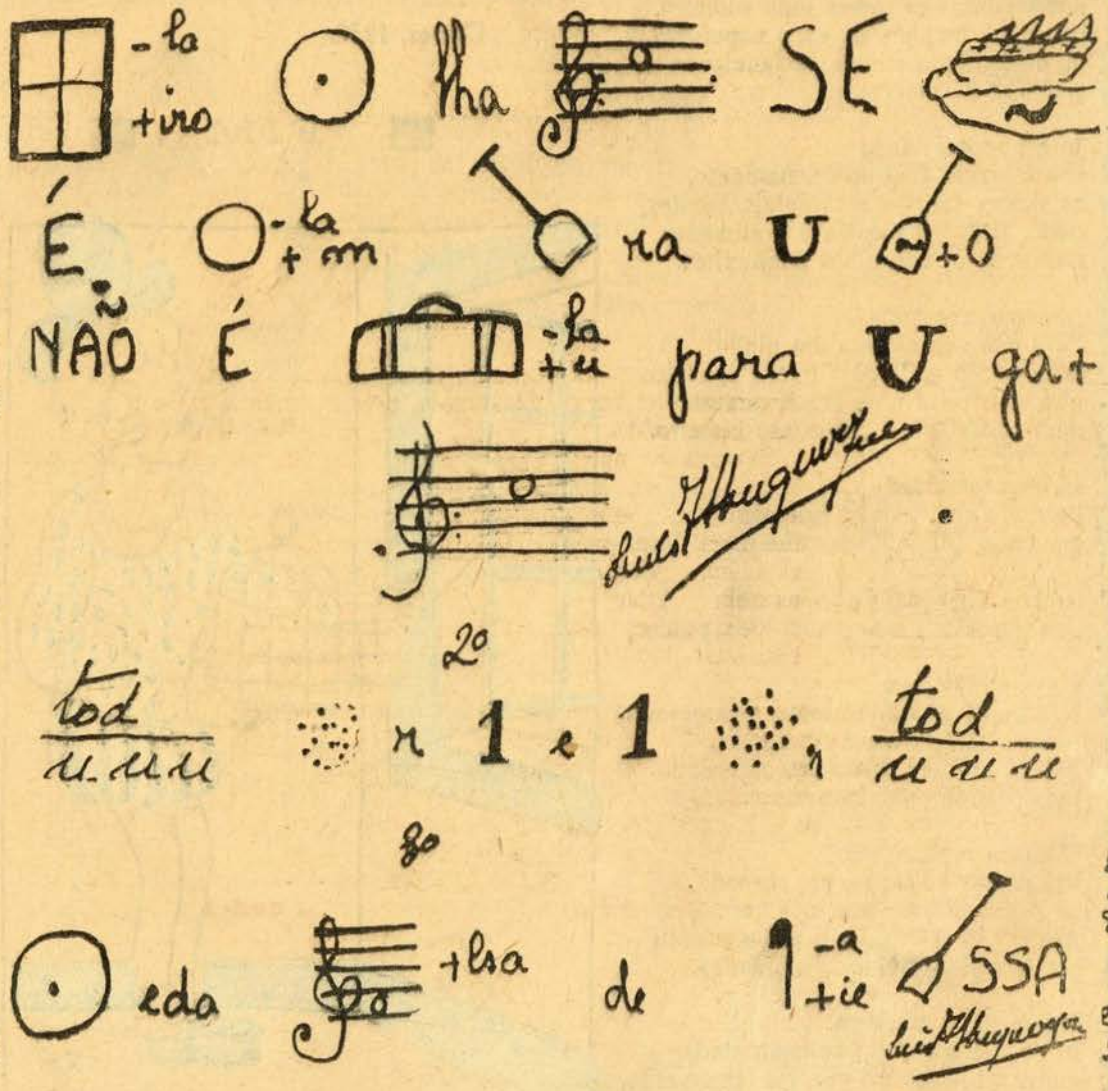 -la
+iro lha SE ~
É -la
+m ra U ~ +O
NÃO É -la
+u para U ga+
Luís
2º
tod
u u u r 1 e 1 , tod
u u u
3º
eda +lsa de -a
+ie SSA
Luís